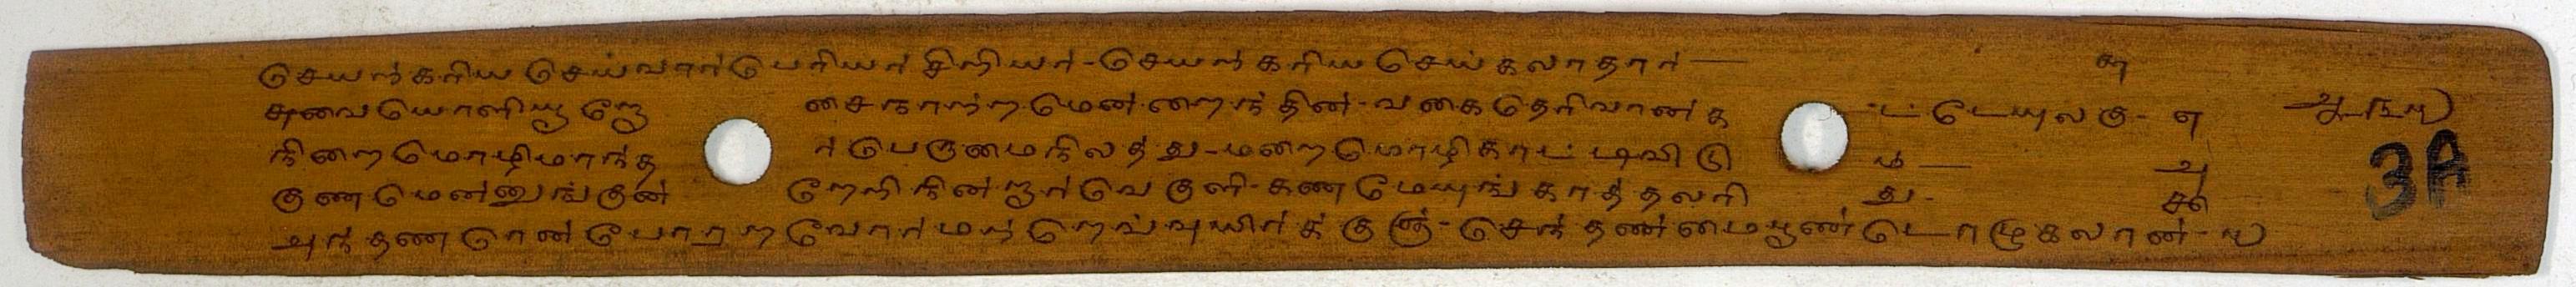 செயற்கரிய செய்வார் பெரியர் சிறியர்-செயற்கரிய செய்கலாதார்— ௬
சுவையொளியூறோசைநாற்றமென்றைந்தின்-வகைதெரிவான்கட்டேயுலகு- ௭
நிறைமொழிமாந்தர்பெருமைநிலத்து-மறைமொழிகாட்டிவிடும்— ௮
குணமென்னுங்குன்றேறிநின்றார்வெகுளி-கணமேயுங்காத்தலரிது- ௯
அந்தணரென்போரறவோர்மற்றெவ்வுயிர்க்குஞ்-செந்தண்மைபூண்டொழுகலான்- ௰
3A